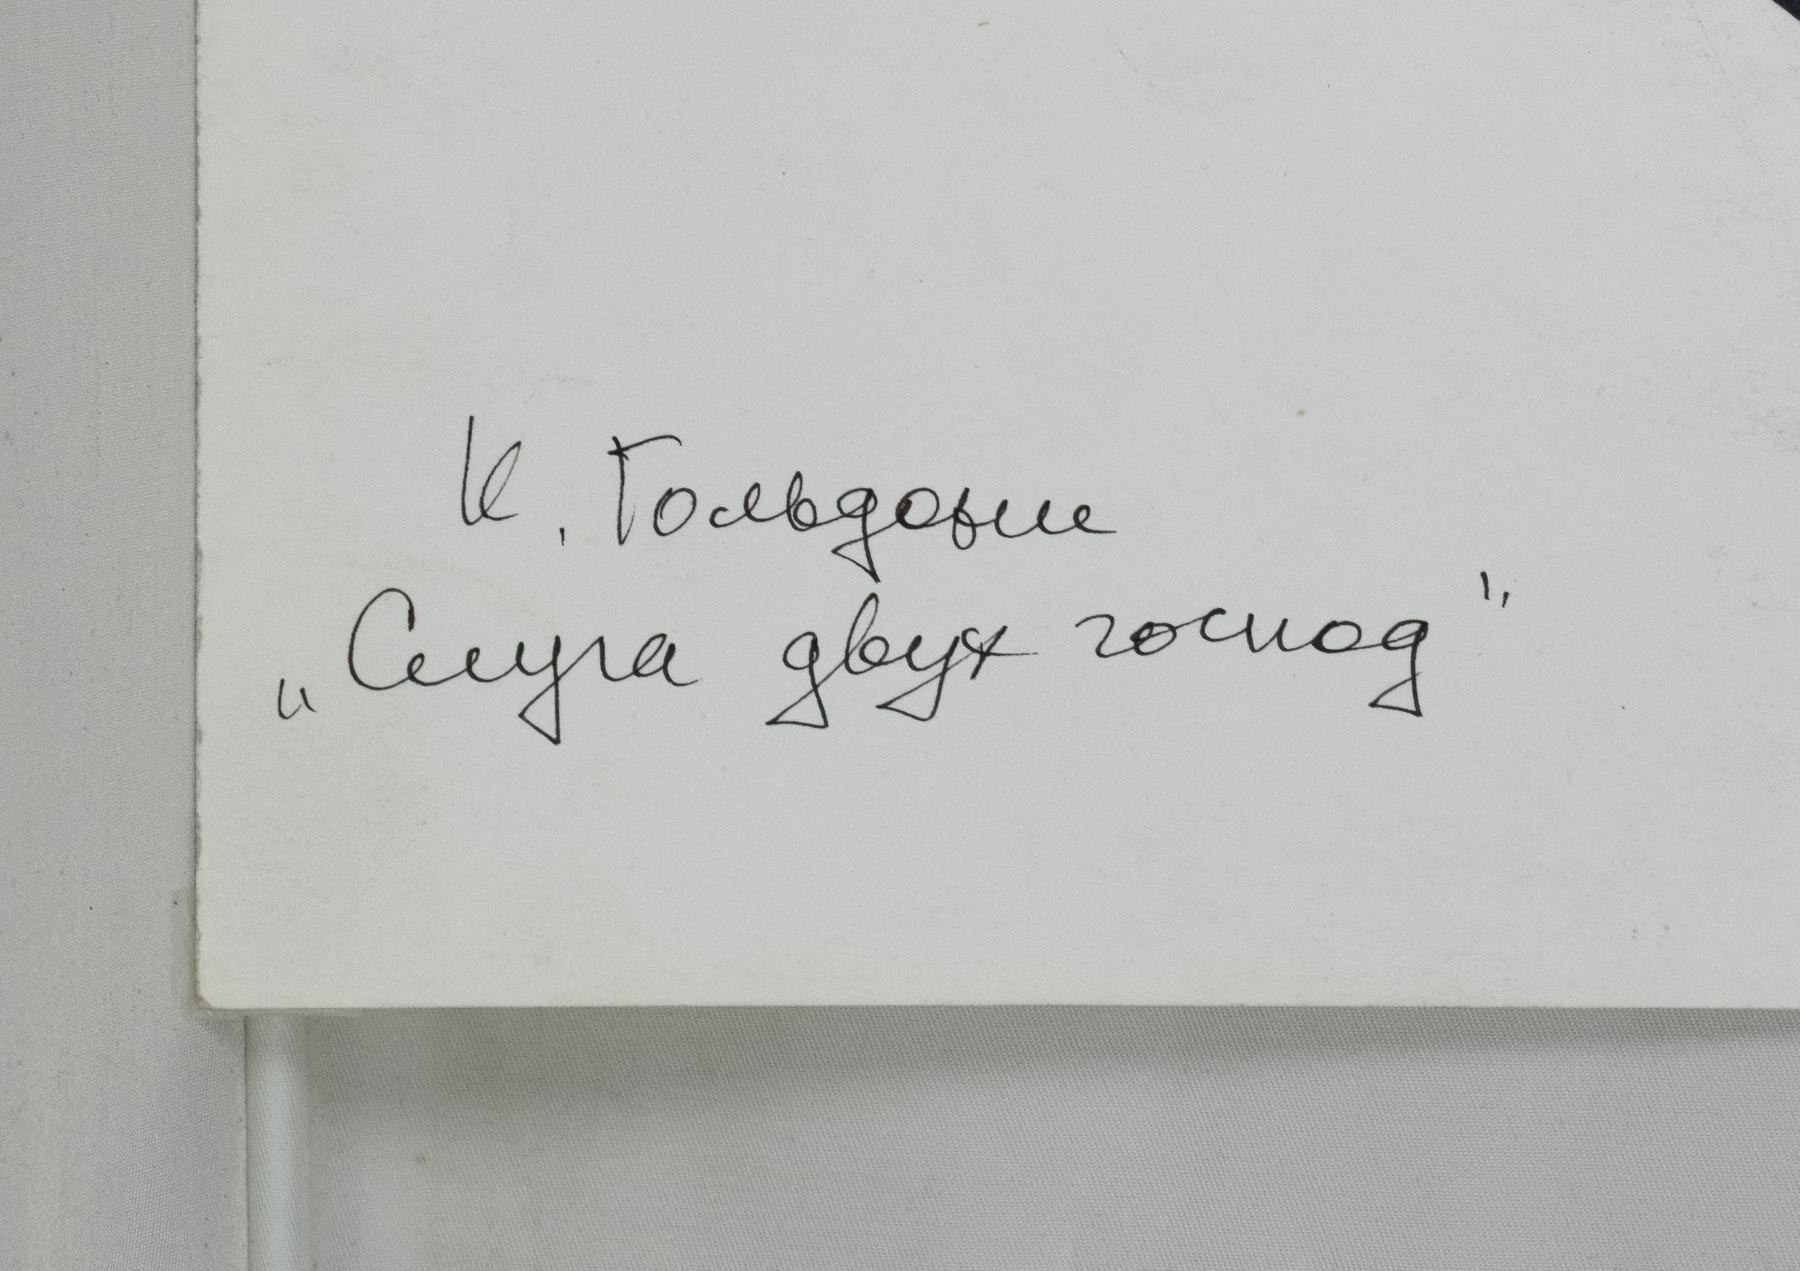 К. Гольдони
„Слуга двух господ"